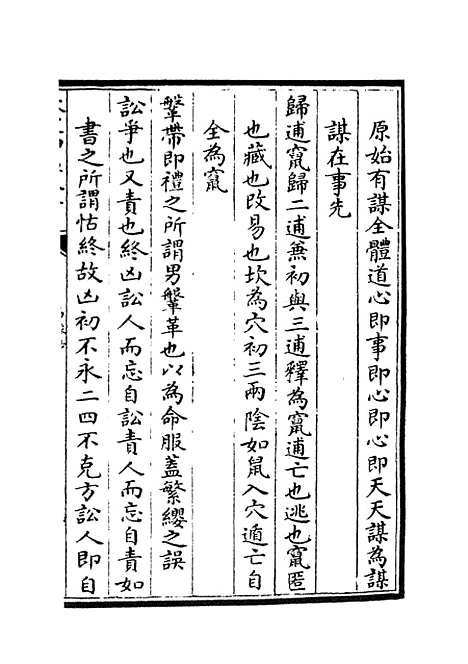 原始有謀全體道心即事即心即心即天天謀為謀
謀在事先
歸逋竄歸二逋兼初與三逋釋為竄逋亡也逃也竄匿
也藏也改易也坎為穴初三兩陰如鼠入穴遁亡自
全為竄
鞶帶即禮之所謂男鞶革也以為命服蓋繁纓之誤
訟爭也又責也終凶訟人而忘自訟責人而忘自責如
書之所謂怙終故凶初不永二四不克方訟人即自